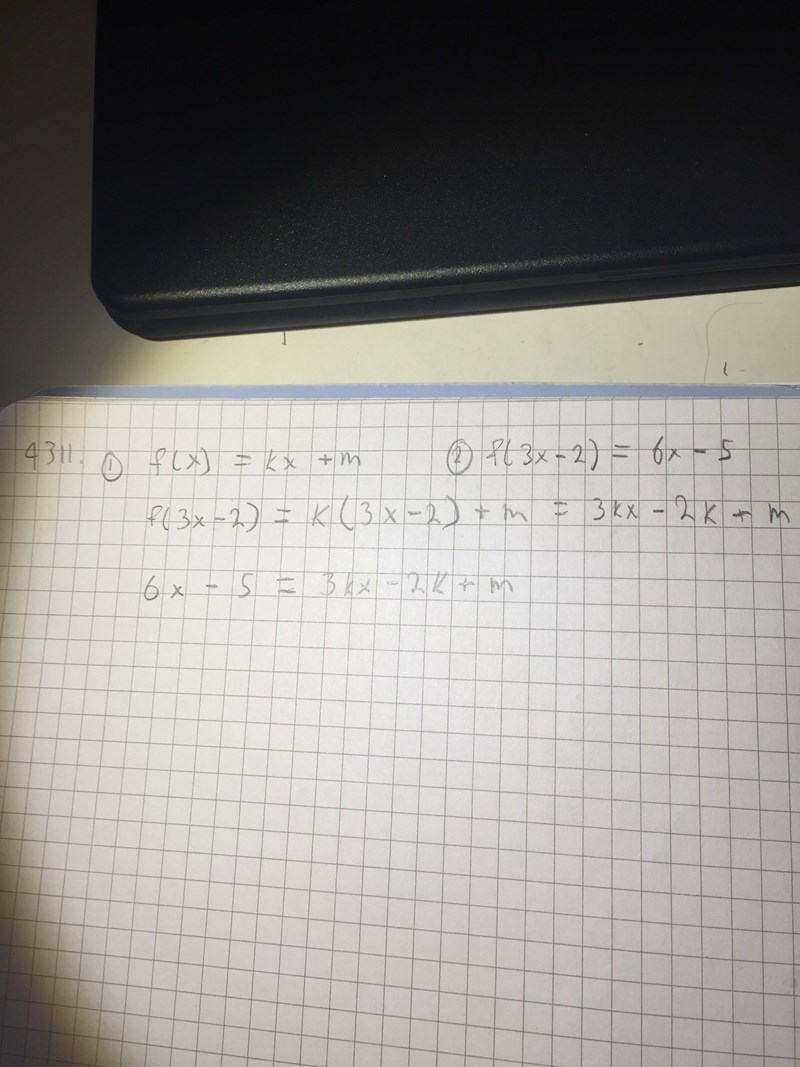 4311. ① f(x) = kx + m ② f(3x-2) = 6x - 5
f(3x-2) = k(3x-2) + m = 3kx - 2k + m
6x - 5 = 3kx - 2k + m